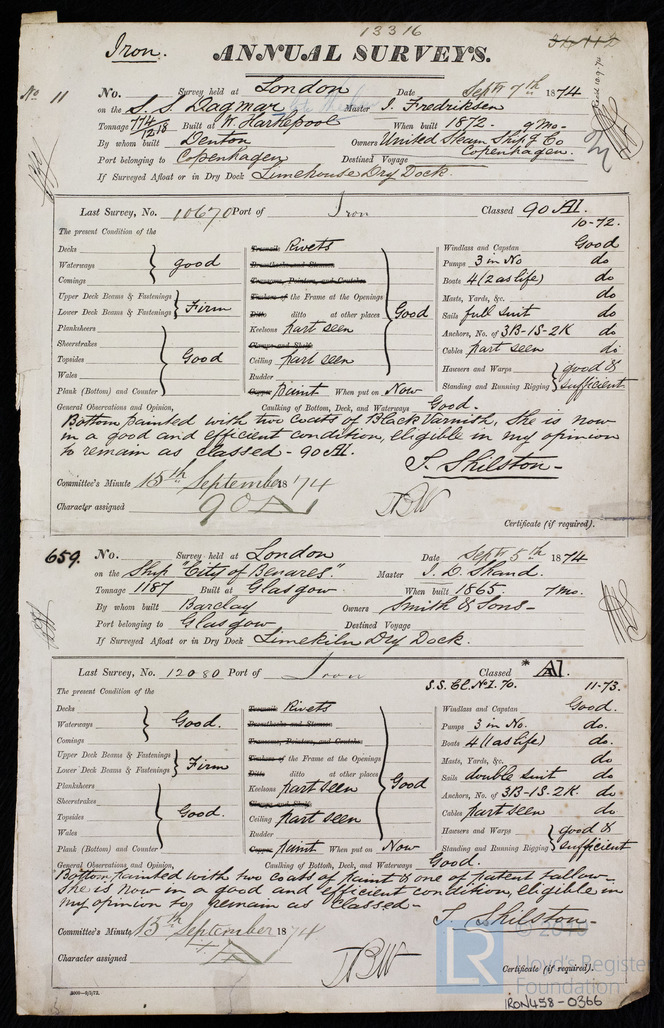 13316
Iron. ANNUAL SURVEYS.
No 11 No. Survey held at London Date Septr 7th 1874
on the S.S. Dagmar Master I. Fredriksen
Tonnage 774 1218 Built at W. Hartlepool When built 1872. 9 Mo-
By whom built Denton Owners United Steam Ship'g Co
Port belonging to Copenhagen Destined Voyage Copenhagen.
If Surveyed Afloat or in Dry Dock Limehouse Dry Dock.
Last Survey, No. 10670 Port of Iron Classed 90 A1.
10-72.
The present Condition of the
Decks Treenails Rivets Windlass and Capstan Good
Waterways good Breasthooks and Stemson Pumps 3 in No do
Comings Transoms, Pointers, and Crutches Boats 4 (2 as life) do
Upper Deck Beams & Fastenings Timbers of the Frame at the Openings Masts, Yards, &c. do
Lower Deck Beams & Fastenings Firm Ditto ditto at other places Good Sails full suit do
Planksheers Keelsons part seen Anchors, No. of 3B-1S-2K do
Sheerstrakes Clamps and Shelf Cables part seen do
Topsides Good Ceiling part seen Hawsers and Warps good &
Wales Rudder Standing and Running Rigging sufficient
Plank (Bottom) and Counter Copper paint When put on Now
General Observations and Opinion, Caulking of Bottom, Deck, and Waterways Good.
Bottom painted with two coats of Black Varnish, She is now
in a good and efficient condition, eligible in my opinion
to remain as classed - 90 A1.
T. Shilston-
Committee's Minute 15th September 1874
Character assigned 90 A
Certificate (if required).
659. No. Survey held at London Date Septr 5th 1874
on the Ship "City of Benares." Master I. D. Shand.
Tonnage 1187 Built at Glasgow When built 1865. 7 Mo.
By whom built Barclay Owners Smith & Sons-
Port belonging to Glasgow Destined Voyage
If Surveyed Afloat or in Dry Dock Limekiln Dry Dock.
Last Survey, No. 12080 Port of Iron Classed * A1.
S.S. Cl. No 1. 70. 11-73.
The present Condition of the
Decks Treenails Rivets Windlass and Capstan Good.
Waterways Good. Breasthooks and Stemson Pumps 3 in No. do.
Comings Transoms, Pointers, and Crutches Boats 4 (1 as life) do.
Upper Deck Beams & Fastenings Timbers of the Frame at the Openings Masts, Yards, &c. do.
Lower Deck Beams & Fastenings Firm Ditto ditto at other places Good Sails double suit do
Planksheers Keelsons part seen Anchors, No. of 3B-1S-2K. do
Sheerstrakes Clamps and Shelf Cables part seen do
Topsides Good. Ceiling part seen Hawsers and Warps good &
Wales Rudder Standing and Running Rigging sufficient
Plank (Bottom) and Counter Copper paint When put on Now
General Observations and Opinion, Caulking of Bottom, Deck, and Waterways Good.
Bottom painted with two coats of paint & one of patent tallow-
She is now in a good and efficient condition, eligible in
my opinion to remain as classed-
T. Shilston-
Committee's Minute 15th September 1874
Character assigned
Certificate (if required).
LR © 2019
Lloyd's Register
Foundation
IRON458-0366